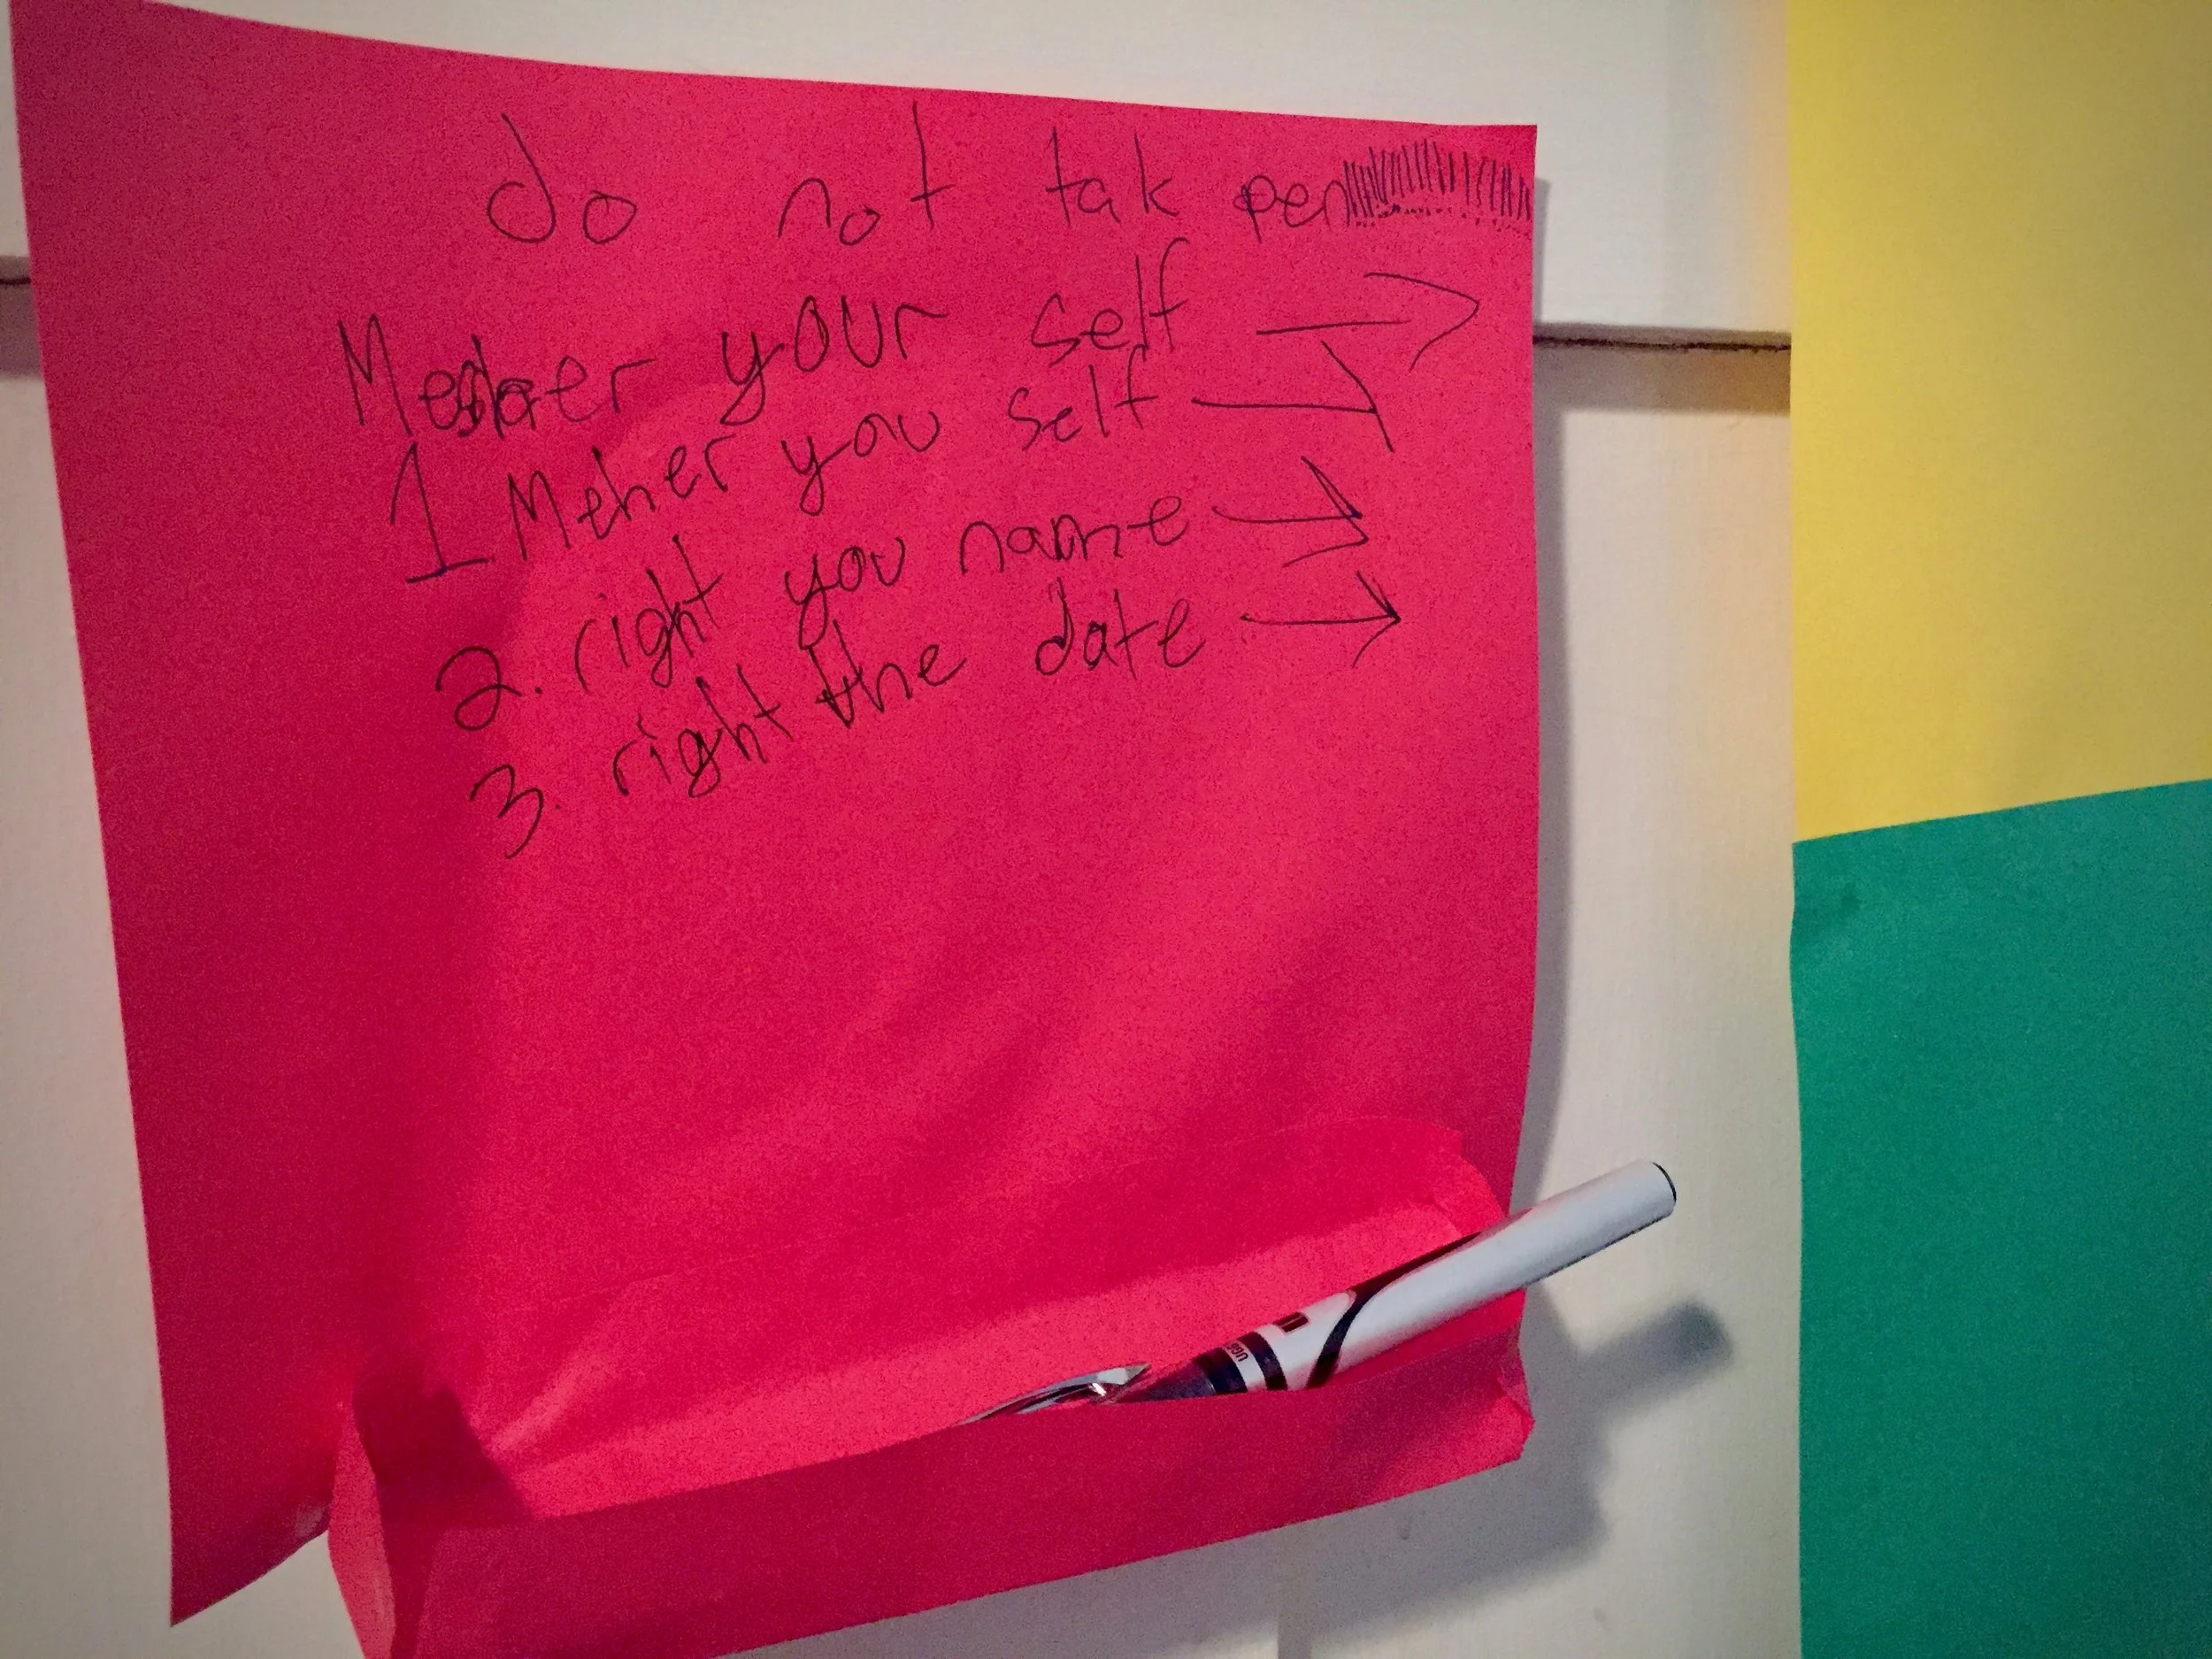 do not tak pen!!!!!!!!!!!!!!!!!!!!!!
Meher your self →
1 Meher you self →
2. right you name →
3. right the date →